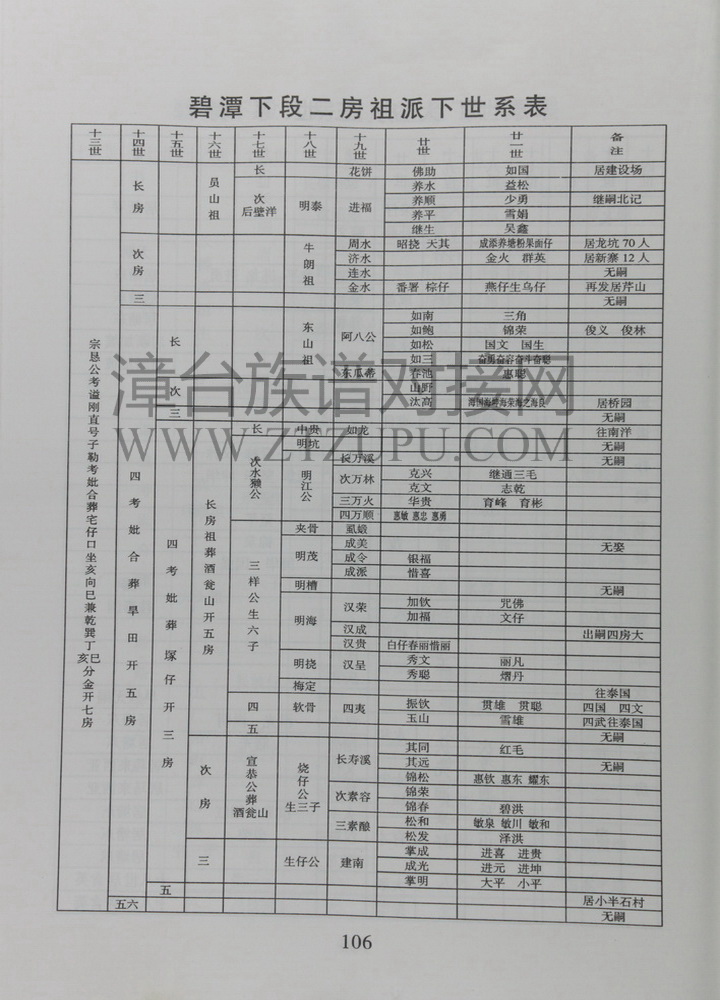 碧潭下段二房祖派下世系表
十三世 十四世 十五世 十六世 十七世 十八世 十九世 廿世 廿一世 备注
宗恳公考谥刚直号子勒考妣合葬宅仔口坐亥向巳兼乾巽丁巳丁亥分金开七房
长房 员山祖 长 花饼 佛助 如国 居建设场
次后壁洋 明泰 进福 养水 益松
养顺 少勇 继嗣北记
养平 雪娟
继生 吴鑫
次房 牛朗祖 周水 昭挠 天其 成添养塘粉果面仔 居龙坑70人
济水 金火 群英 居新寨12人
连水 无嗣
金水 番署 棕仔 燕仔生乌仔 再发居芹山
三 无嗣
四考妣合葬旱田开五房 长 东山祖 阿八公 如南 三角
如鲍 锦荣 俊义 俊林
如松 国文 国生
如三 奋勇奋容奋斗奋聪
次 东瓜蒂 春池 惠聪
山野
汰高 居桥园
三 无嗣
四考妣葬塚仔开三房 长房祖葬酒瓮山开五房 长 中贵 如龙 往南洋
明坑 无嗣
次水獭公 明江公 长万溪 无嗣
次万林 克兴 继通三毛
克文 志乾
三万火 华贵 育峰 育彬
四万顺 惠敏 惠忠 惠勇
三样公生六子 夹骨 虱缎
明茂 成美 无娶
成令 银福
成派 惜喜
明槽 无嗣
明海 汉荣 加钦 咒佛
加福 文仔
汉成 出嗣四房大
汉贵 白仔春丽惜丽
明挠 汉呈 秀文 丽凡
秀聪 熠丹
梅定 往泰国
四 软骨 四夷 振钦 贯雄 贯聪 四国 四文
玉山 雪雄 四武往泰国
五 无嗣
次房 宣恭公葬酒瓮山 烧仔公生三子 长寿溪 其同 红毛
其远 无嗣
锦松 惠钦 惠东 耀东
次素容 锦荣
锦春 碧洪
三素酿 松和 敏泉 敏川 敏和
松发 泽洪
三 生仔公 建南 掌成 进喜 进贵
成光 进元 进坤
掌明 大平 小平
五 居小半石村
五六 无嗣
漳台族谱对接网
WWW.ZTZUPU.COM
106